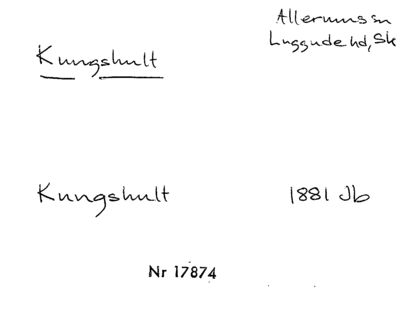 Allerums sn
Luggude hd, Sk
Kungshult
Kungshult 1881 Jb
Nr 17874